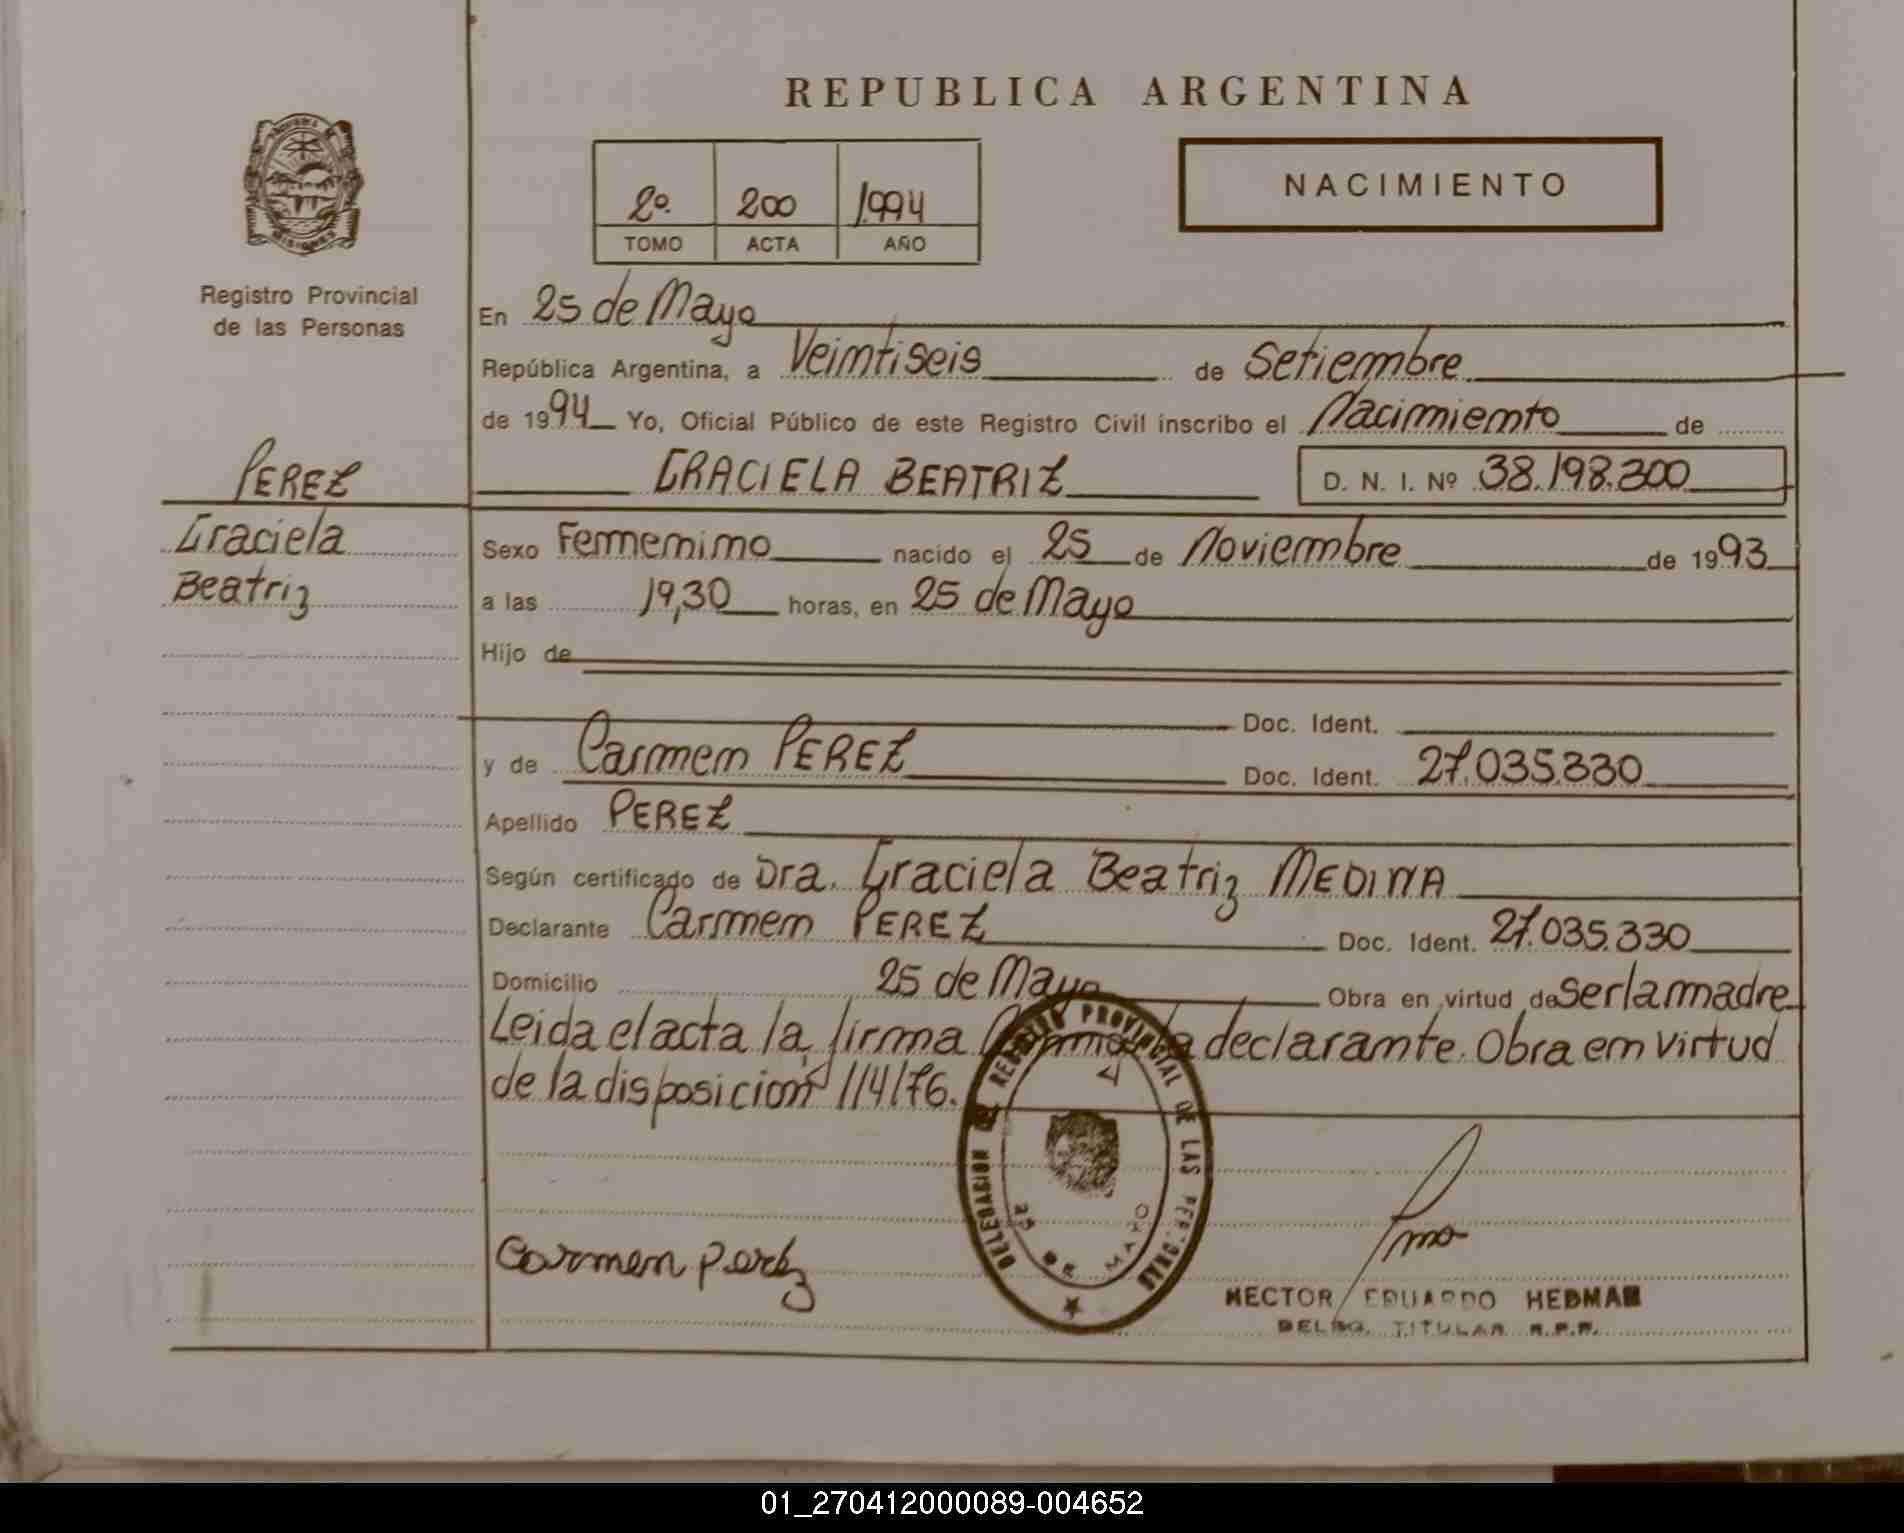 REPUBLICA ARGENTINA
NACIMIENTO
2º 200 1994
TOMO ACTA AÑO
Registro Provincial
de las Personas
PEREZ
Graciela
Beatriz
En 25 de Mayo
República Argentina, a Veintiseis de Setiembre
de 1994 Yo, Oficial Público de este Registro Civil inscribo el Nacimiento de
GRACIELA BEATRIZ D. N. I. Nº 38.198.300
Sexo Femenino nacido el 25 de Noviembre de 1993
a las 19,30 horas, en 25 de Mayo
Hijo de
Doc. Ident.
y de Carmen PEREZ Doc. Ident. 27.035.330
Apellido PEREZ
Según certificado de Dra. Graciela Beatriz MEDINA
Declarante Carmen PEREZ Doc. Ident. 27.035.330
Domicilio 25 de Mayo Obra en virtud de Ser la madre
Leida el acta la firma la declarante. Obra en virtud
de la disposicion 114/76.
DELEGACION REGISTRO PROVINCIAL DE LAS PERSONAS
25 DE MAYO
Carmen Perez
HECTOR EDUARDO HEDMAN
DELEG. TITULAR R.P.P.
01_270412000089-004652